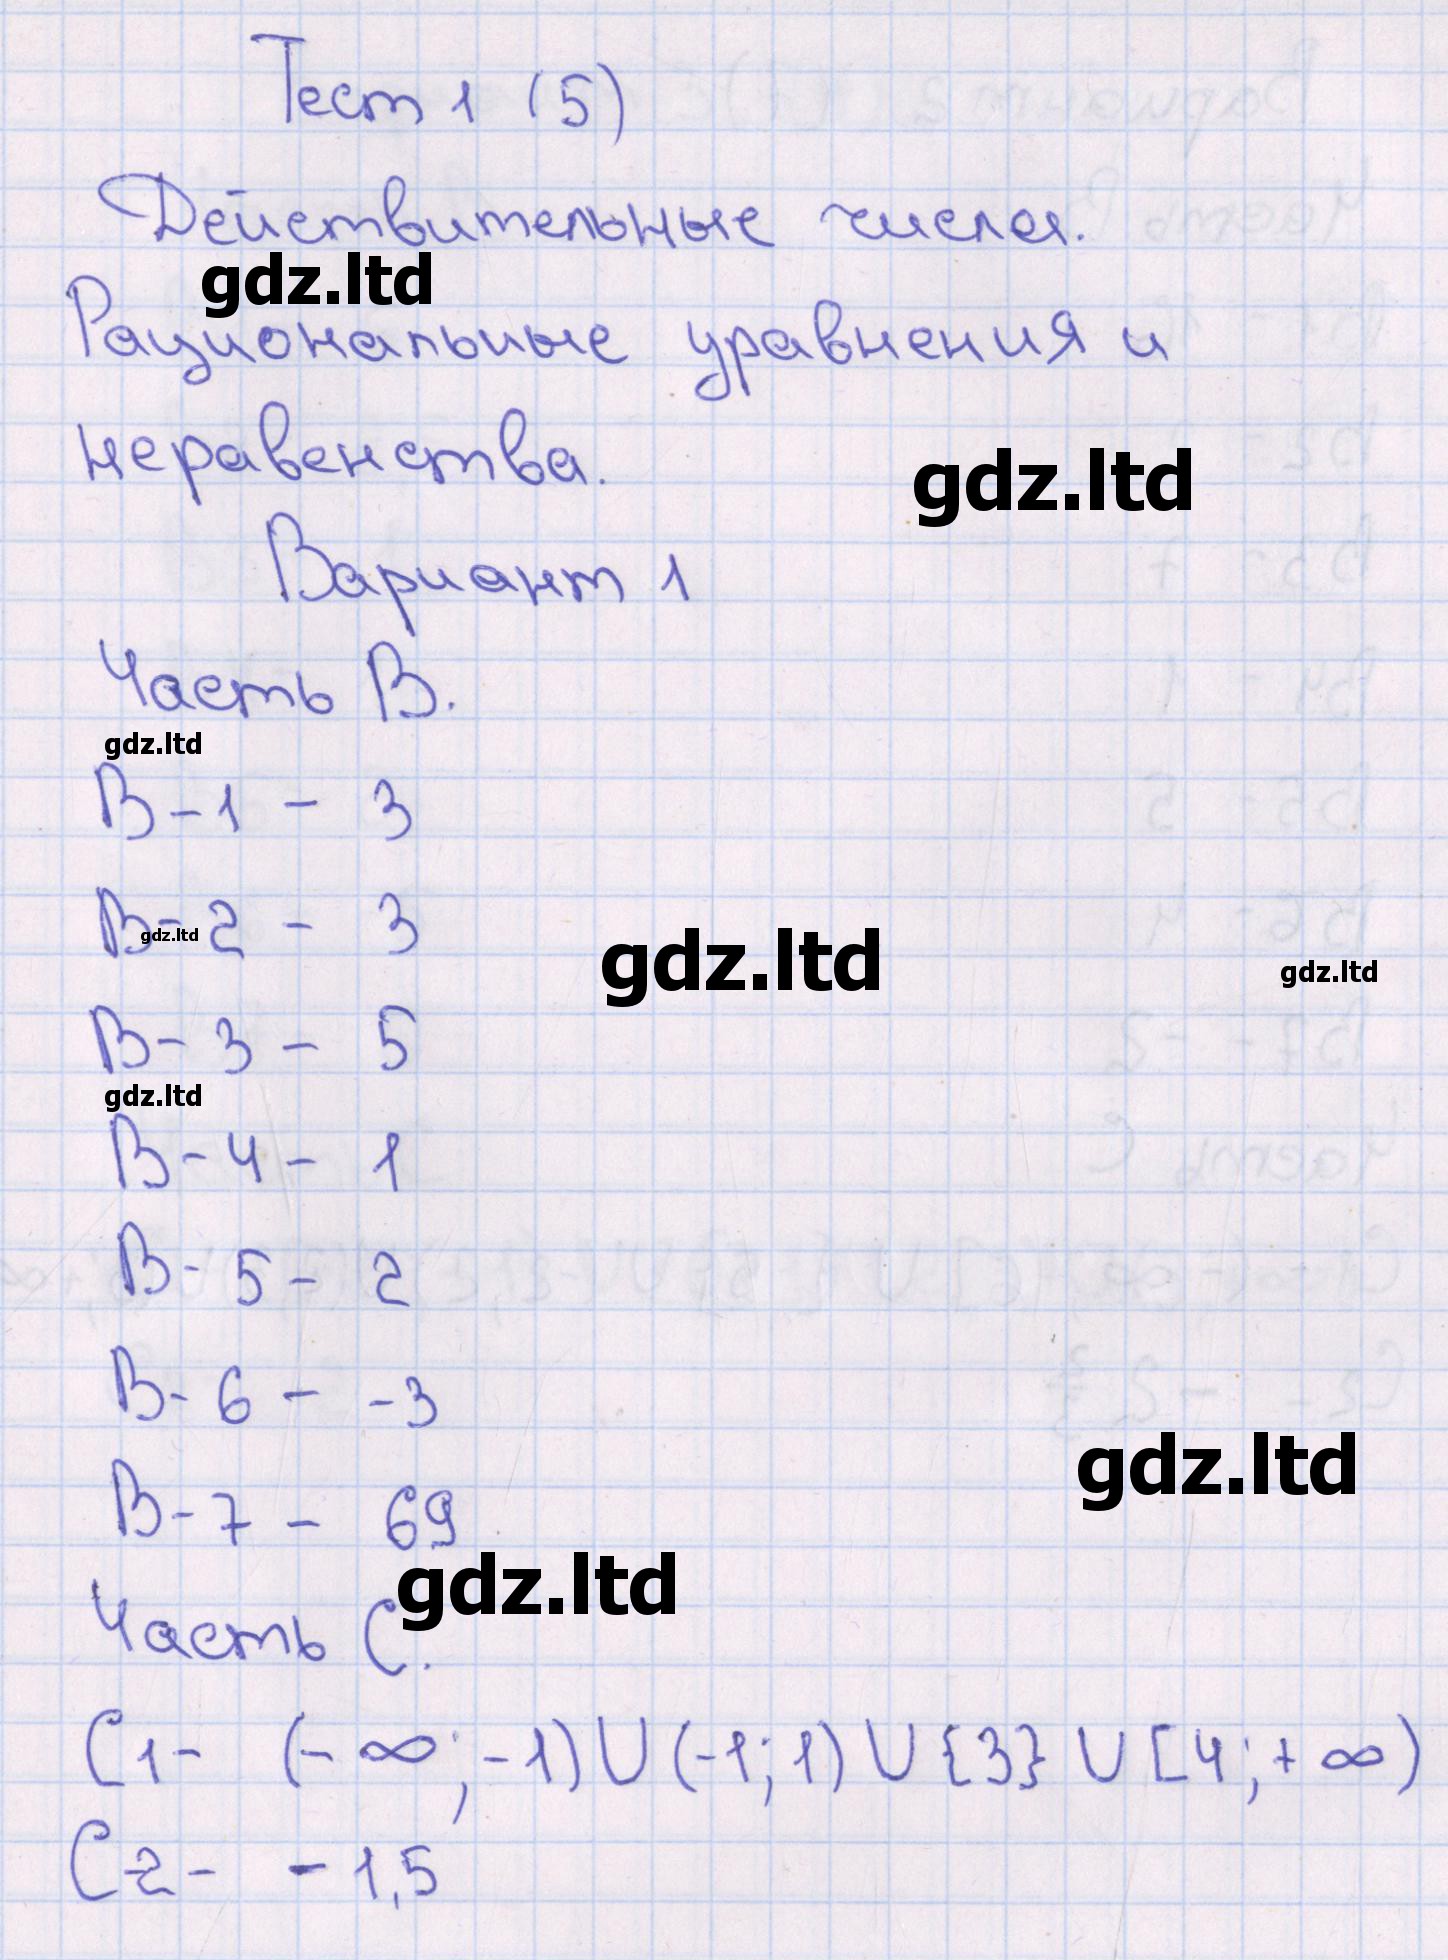 Тест 1 (5)
Действительные числа.
gdz.ltd
Рациональные уравнения и
неравенства.
gdz.ltd
Вариант 1
Часть В.
gdz.ltd
В-1 - 3
В-2 - 3
gdz.ltd
gdz.ltd
gdz.ltd
В-3 - 5
gdz.ltd
В-4 - 1
В-5 - 2
В-6 - -3
gdz.ltd
В-7 - 69
gdz.ltd
Часть С.
С1- (-∞; -1) U (-1; 1) U {3} U [4; +∞)
С-2- -1,5